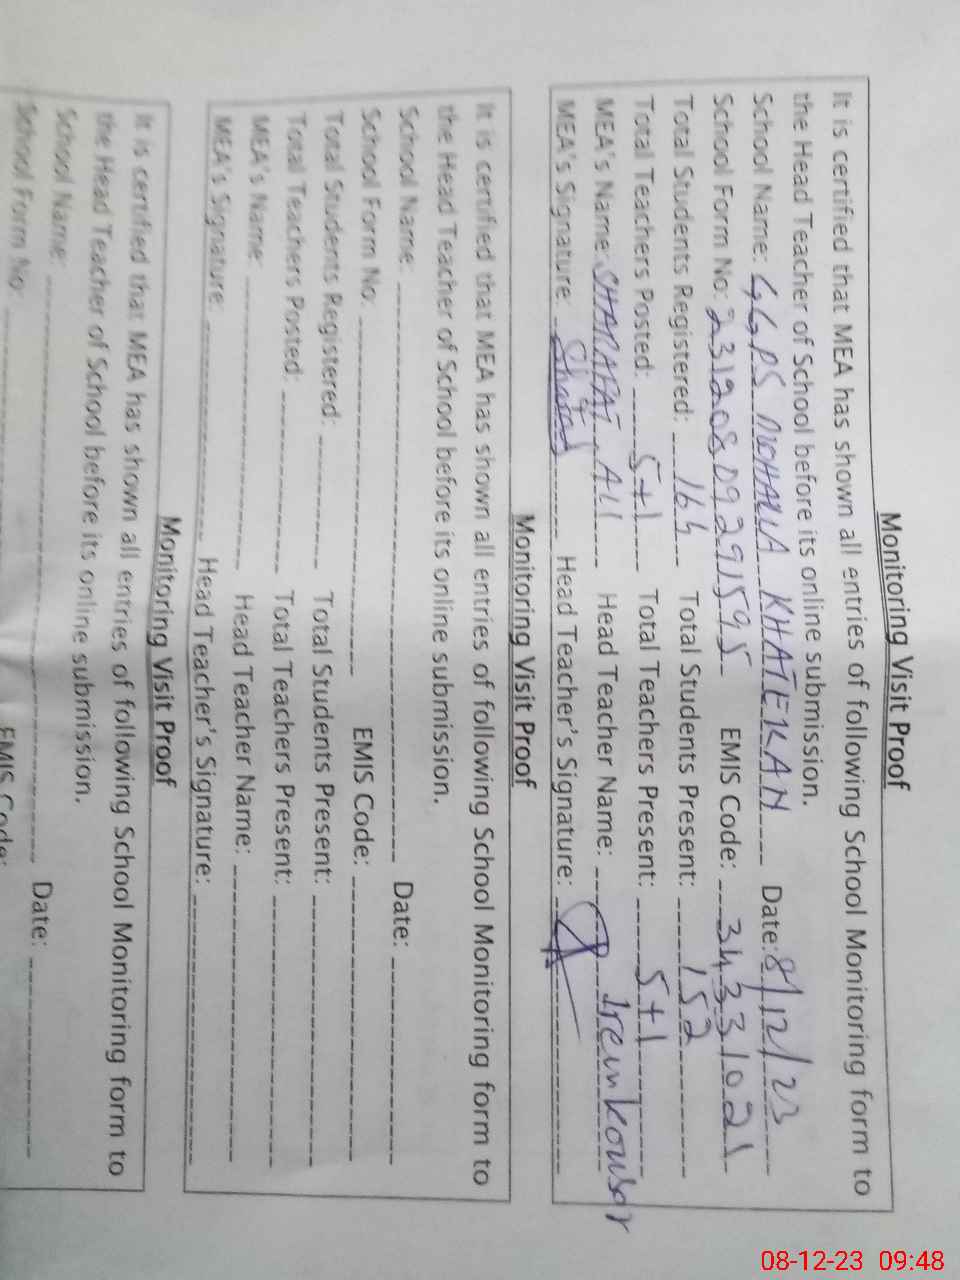 Monitoring Visit Proof
It is certified that MEA has shown all entries of following School Monitoring form to
the Head Teacher of School before its online submission.
School Name: GGPS MOHALLA KHATEKAN Date: 8/12/23
School Form No: 23120809291595 EMIS Code: 34331021
Total Students Registered: 164 Total Students Present: 152
Total Teachers Posted: 5+1 Total Teachers Present: 5+1
MEA's Name: SHARAFAT ALI Head Teacher Name: Irem kousar
MEA's Signature: Head Teacher's Signature:
Monitoring Visit Proof
It is certified that MEA has shown all entries of following School Monitoring form to
the Head Teacher of School before its online submission.
School Name: Date:
School Form No: EMIS Code:
Total Students Registered: Total Students Present:
Total Teachers Posted: Total Teachers Present:
MEA's Name: Head Teacher Name:
MEA's Signature: Head Teacher's Signature:
Monitoring Visit Proof
It is certified that MEA has shown all entries of following School Monitoring form to
the Head Teacher of School before its online submission.
School Name: Date:
School Form No: EMIS Code:
08-12-23 09:48